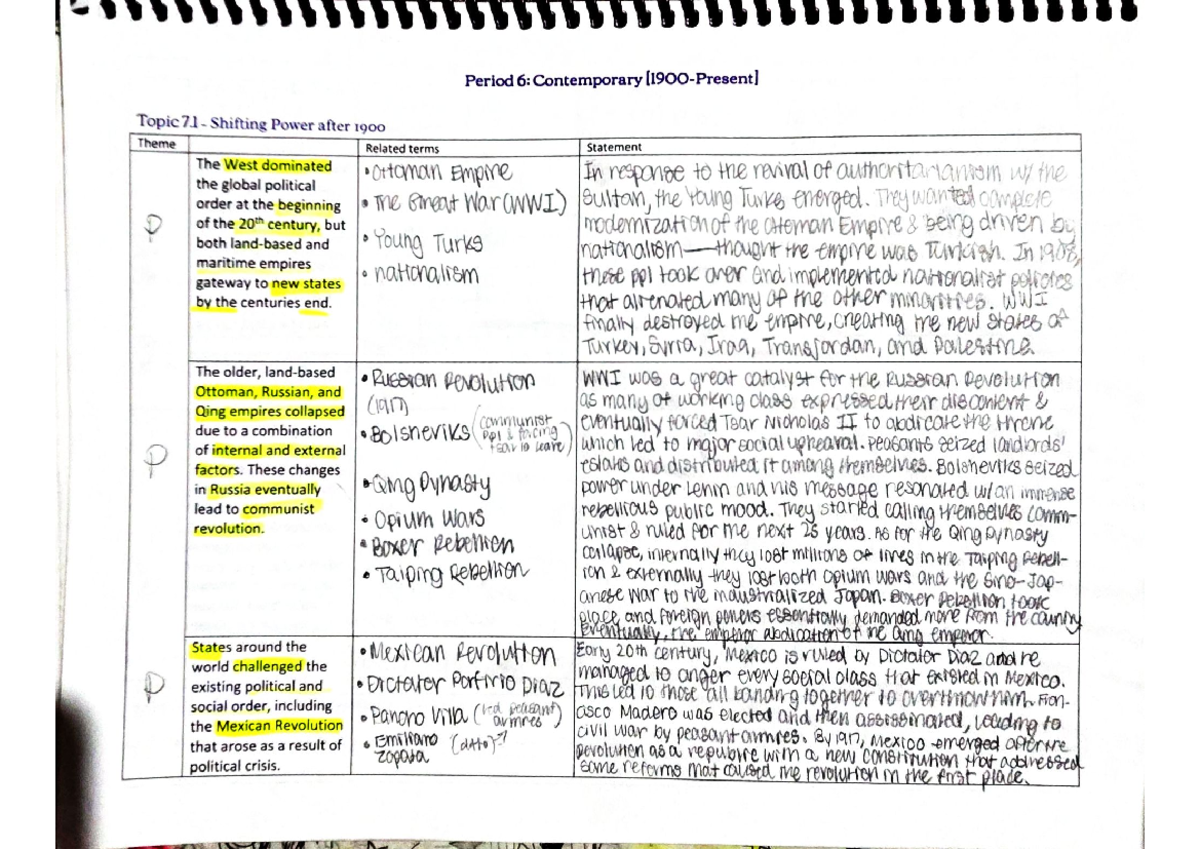 Period 6: Contemporary [1900-Present]
Topic 7.1 - Shifting Power after 1900
Theme
Related terms
Statement
P
The West dominated
the global political
order at the beginning
of the 20th century, but
both land-based and
maritime empires
gateway to new states
by the centuries end.
• Ottoman Empire
• The Great War (WWI)
• Young Turks
• nationalism
In response to the revival of authoritarianism w/ the
Sultan, the Young Turks emerged. They wanted complete
modernization of the Ottoman Empire & being driven by
nationalism—thought the empire was Turkish. In 1908,
these ppl took over and implemented nationalist policies
that alienated many of the other minorities. WWI
finally destroyed the empire, creating the new states of
Turkey, Syria, Iraq, Transjordan, and Palestine.
P
The older, land-based
Ottoman, Russian, and
Qing empires collapsed
due to a combination
of internal and external
factors. These changes
in Russia eventually
lead to communist
revolution.
• Russian Revolution
(1917)
• Bolsheviks (communist
ppl & forcing
tsar to leave)
• Qing Dynasty
• Opium Wars
• Boxer Rebellion
• Taiping Rebellion
WWI was a great catalyst for the Russian Revolution
as many of working class expressed their discontent &
eventually forced Tsar Nicholas II to abdicate the throne
which led to major social upheaval. Peasants seized landlords'
estates and distributed it among themselves. Bolsheviks seized
power under Lenin and his message resonated w/ an immense
rebellious public mood. They started calling themselves comm-
unist & ruled for the next 25 years. As for the Qing Dynasty
collapse, internally they lost millions of lives in the Taiping Rebell-
ion & externally they lost both Opium Wars and the Sino-Jap-
anese War to the industrialized Japan. Boxer Rebellion took
place and foreign powers essentially demanded more from the country
Eventually, the emperor abdication of the Qing emperor.
P
States around the
world challenged the
existing political and
social order, including
the Mexican Revolution
that arose as a result of
political crisis.
• Mexican Revolution
• Dictator Porfirio Diaz
• Pancho Villa (led peasant
armies)
• Emiliano (ditto)
Zapata
Early 20th century, Mexico is ruled by Dictator Diaz and he
managed to anger every social class that existed in Mexico.
This led to those all banding together to overthrow him. Fran-
asco Madero was elected and then assassinated, leading to
civil war by peasant armies. By 1917, Mexico emerged after the
revolution as a republic with a new constitution that addressed
some reforms that caused the revolution in the first place.